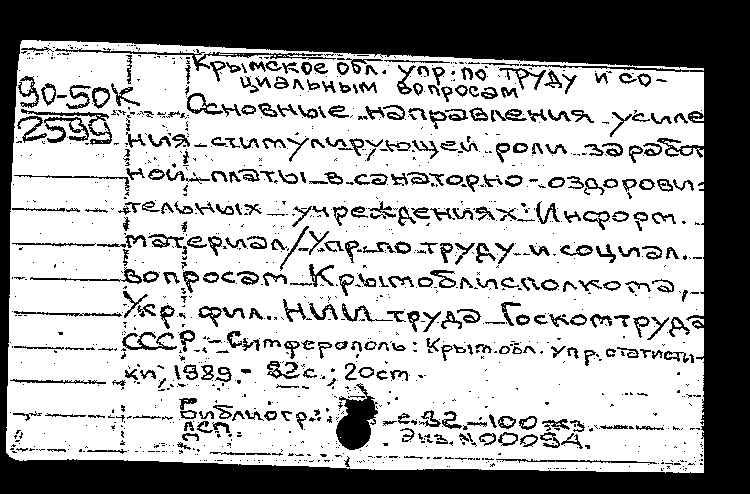 Крымское обл. упр. по труду и со-
циальным вопросам
90-50К
2599
Основные направления усиле
ния стимулирующей роли заработ
ной платы в санаторно-оздорови-
тельных учреждениях: Информ.
материал/Упр. по труду и социал.
вопросам Крымоблисполкома,
Укр. фил. НИИ труда Госкомтруда
СССР. - Симферополь: Крым.обл. упр. статисти-
ки, 1989. - 32с.; 20см.
Библиогр.: с.32. - 100экз.
ДСП. Экз. N00094.